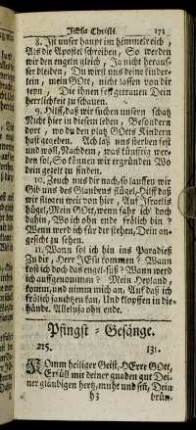 JEsu Christi. 171
8. Ist unser haupt im himmelreich,
Als die Apostel schreiben, So werden
wir den engeln gleich, Ja nicht heraus-
ser bleiben, Du wirst uns deine kinder-
lein, mein GOtt, nicht lassen von dir
seyn, Die ihnen fest getrauen Dein
herrlichkeit zu schauen.
9. Hilff, daß wir suchen unsern schatz
Nicht hier in diesem leben, Besondern
dort, wo du den platz GOttes Kindern
hast gegeben. Ach laß uns sterben fest
und woll, Nachdem, was künfftig wer-
den sol, So können wir ergründen Wo
dein gezelt zu finden.
10. Zeuch uns dir nach, so lauffen wir
Gib uns des Glaubens flügel, Hilff daß
wir fliegen weit von hier, Auf Israelis
hügel, Mein GOtt, wenn fahr ich doch
dahin, Woich ohn ende frölich bin?
Wenn werd ich für dir stehen, Dein an-
gesicht zu sehen.
11. Wann sol ich hin ins Paradieß
Zu dir, HErr JEsu kommen? Wann
kost ich doch das engel-süß? Wann werd
ich aufgenommen? Mein Heyland,
komm, und nimm mich an, Auf daß ich
frölich jauchtzen kan, Und klopffen in die
hände. Alleluja ohn ende.
Pfingst-Gesänge.
215. 131.
KOmm heiliger Geist, HErre GOtt,
Erfüll mit deiner gnaden gut Dei-
ner gläubigen hertz, muht und sen, Dein
h3 brün-